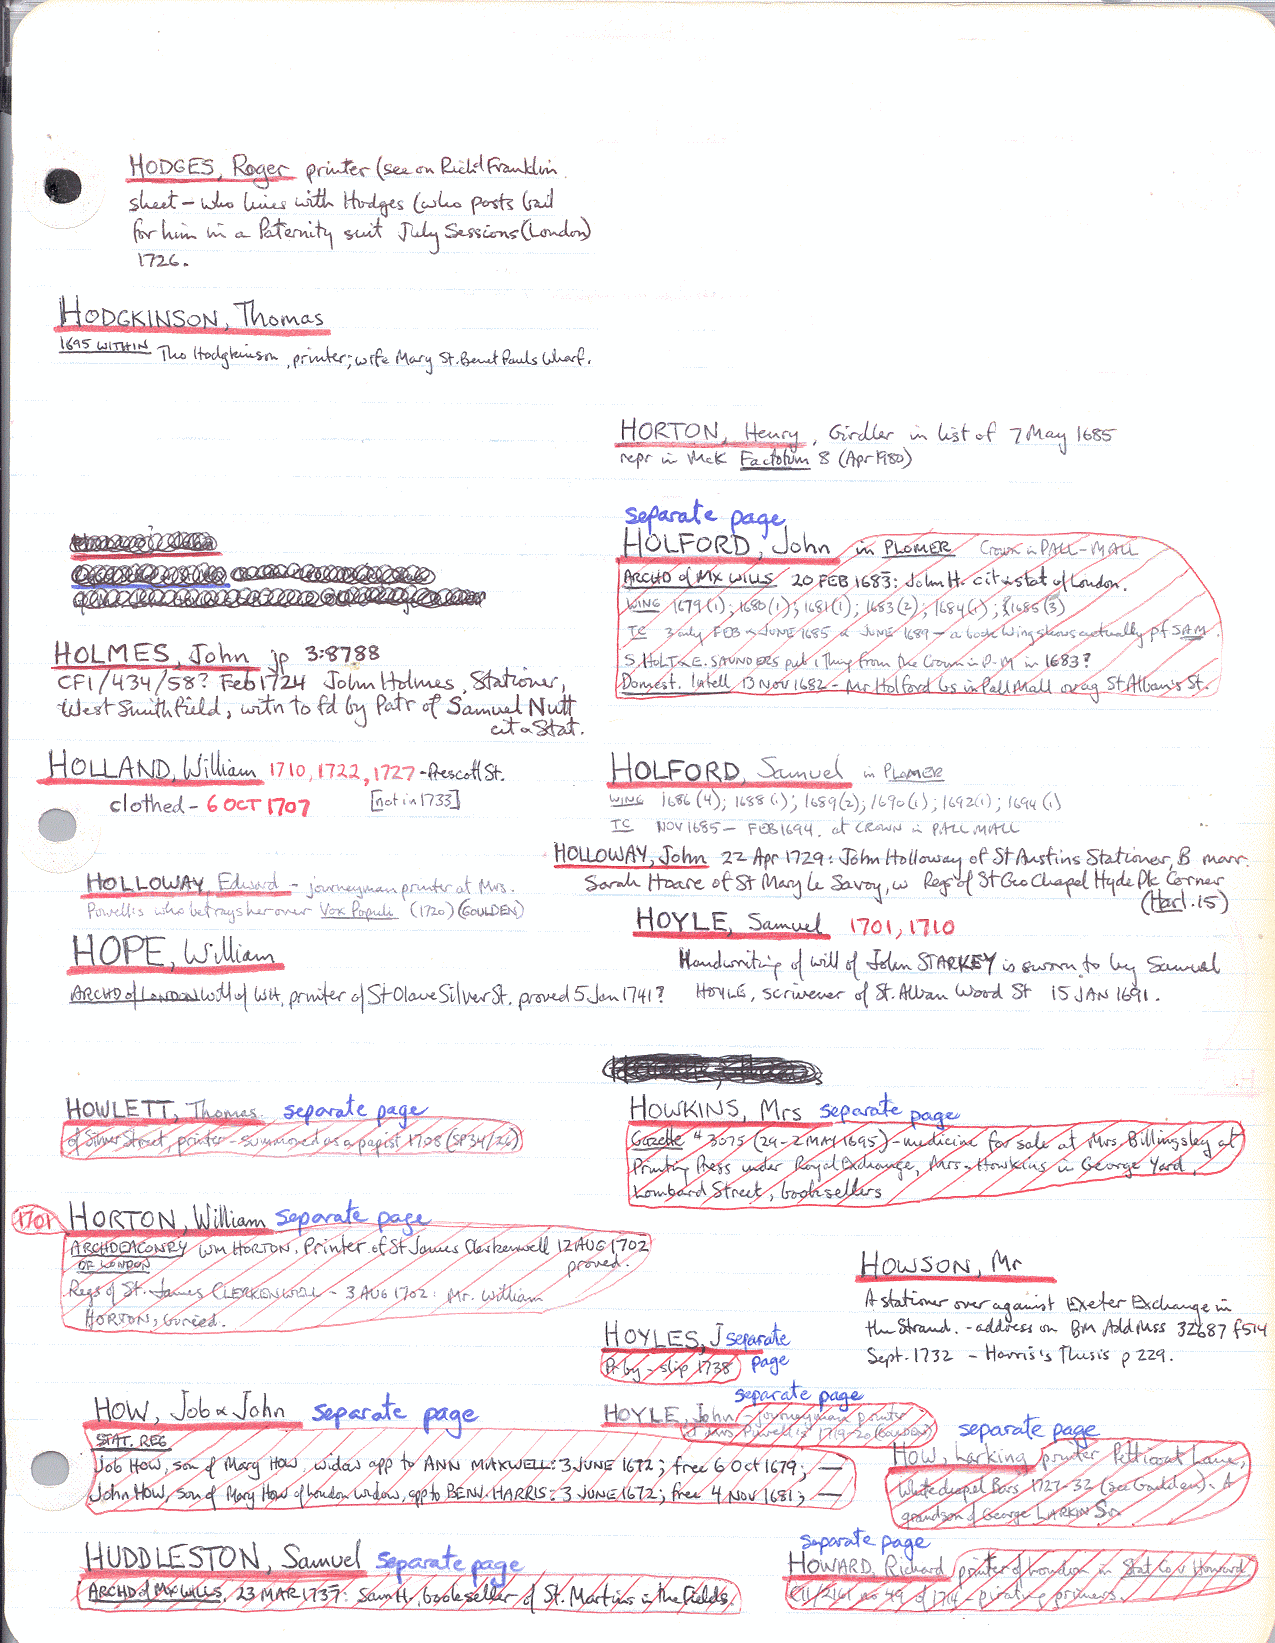 HODGES, Roger printer (see on Richd Franklin
sheet – who lives with Hodges (who posts bail
for him in a Paternity suit July Sessions (London)
1726.
HODGKINSON, Thomas
1695 WITHIN Tho Hodgkinson, printer; wife Mary St. Benet Pauls Wharf.
HORTON, Henry, Girdler in list of 7 May 1685
repr in McK Factotum 8 (Apr 1980)
separate page
HOLFORD, John in PLOMER Crown in PALL-MALL
ARCHD of MX WILLS 20 FEB 1683: John H. cit & stat of London.
WING 1679(1); 1680(1); 1681(1); 1683(2); 1684(1); 1685(3)
TC 3 only FEB & JUNE 1685 & JUNE 1689 – a book Wing shows actually pf SAM.
S. HOLT & E. SAUNDERS pub 1 thing from the Crown in P-M in 1683?
Domest. Intell 13 NOV 1682 – Mr Holford bs in Pall Mall ov ag St Alban's St.
HOLMES, John jp 3:8788
CF1/434/58? Feb 1724 John Holmes, Stationer,
West Smithfield, witn to fd by Patr of Samuel Nutt
cit & Stat.
HOLLAND, William 1710, 1722, 1727 – Prescott St.
clothed – 6 OCT 1707 [not in 1733]
HOLFORD, Samuel in PLOMER
WING 1686(4); 1688(1); 1689(2); 1690(1); 1692(1); 1694(1)
TC NOV 1685 – FEB 1694. at CROWN in PALL MALL
HOLLOWAY, John 22 Apr 1729: John Holloway of St Austins Stationer, B marr.
Sarah Hoare of St Mary le Savoy, w Regs of St Geo Chapel Hyde Pk Corner
(Harl. 15)
HOLLOWAY Edward – journeyman printer at Mrs.
Powell's who betrays her over Vox Populi (1720) (GOULDEN)
HOPE, William
ARCHD of LONDON Will of WH, printer of St Olave Silver St, proved 5 Jan 1741?
HOYLE, Samuel 1701, 1710
Handwriting of will of John STARKEY is sworn to by Samuel
HOYLE, scrivener of St. Alban Wood St 15 JAN 1691.
HOWLETT, Thomas separate page
of Silver Street, printer – summoned as a papist 1708 (SP34/26)
HOWKINS, Mrs separate page
Gazette # 3075 (29 – 2 MAY 1695) – medicine for sale at Mrs Billingsley at
Printing Press under Royal Exchange, Mrs. Howkins in George Yard,
Lombard Street, booksellers
1701 HORTON, William separate page
ARCHDEACONRY OF LONDON WM HORTON, Printer of St James Clerkenwell 12 AUG 1702
proved.
Regs of St. James CLERKENWELL – 3 AUG 1702: Mr. William
HORTON, buried.
HOWSON, Mr
A stationer over against Exeter Exchange in
the Strand. – address on BM Add Mss 32687 f514
Sept. 1732 – Harris's Thesis p 229.
HOYLES, J separate
Pr by – slip 1738 page
separate page
HOYLE, John – journeyman printer
at Mrs Powell's 1719-20 (GOULDEN)
HOW, Job & John separate page
STAT. REG
Job HOW, son of Mary HOW, widow app to ANN MAXWELL: 3 JUNE 1672; free 6 Oct 1679; —
John HOW, son of Mary How of London widow, app to BENJ. HARRIS: 3 JUNE 1672; free 4 NOV 1681; —
separate page
HOW, Larking printer Petticoat Lane,
Whitechapel Bars 1727-32 (see Goulden). A
grandson of George LARKIN Sr.
HUDDLESTON, Samuel separate page
ARCHD of MX WILLS, 23 MAR 1737: Sam H, bookseller of St. Martins in the fields.
separate page
HOWARD, Richard printer of London in Stat Co v Howard
C11/2161 no 49 of 1714 – pirating primers.